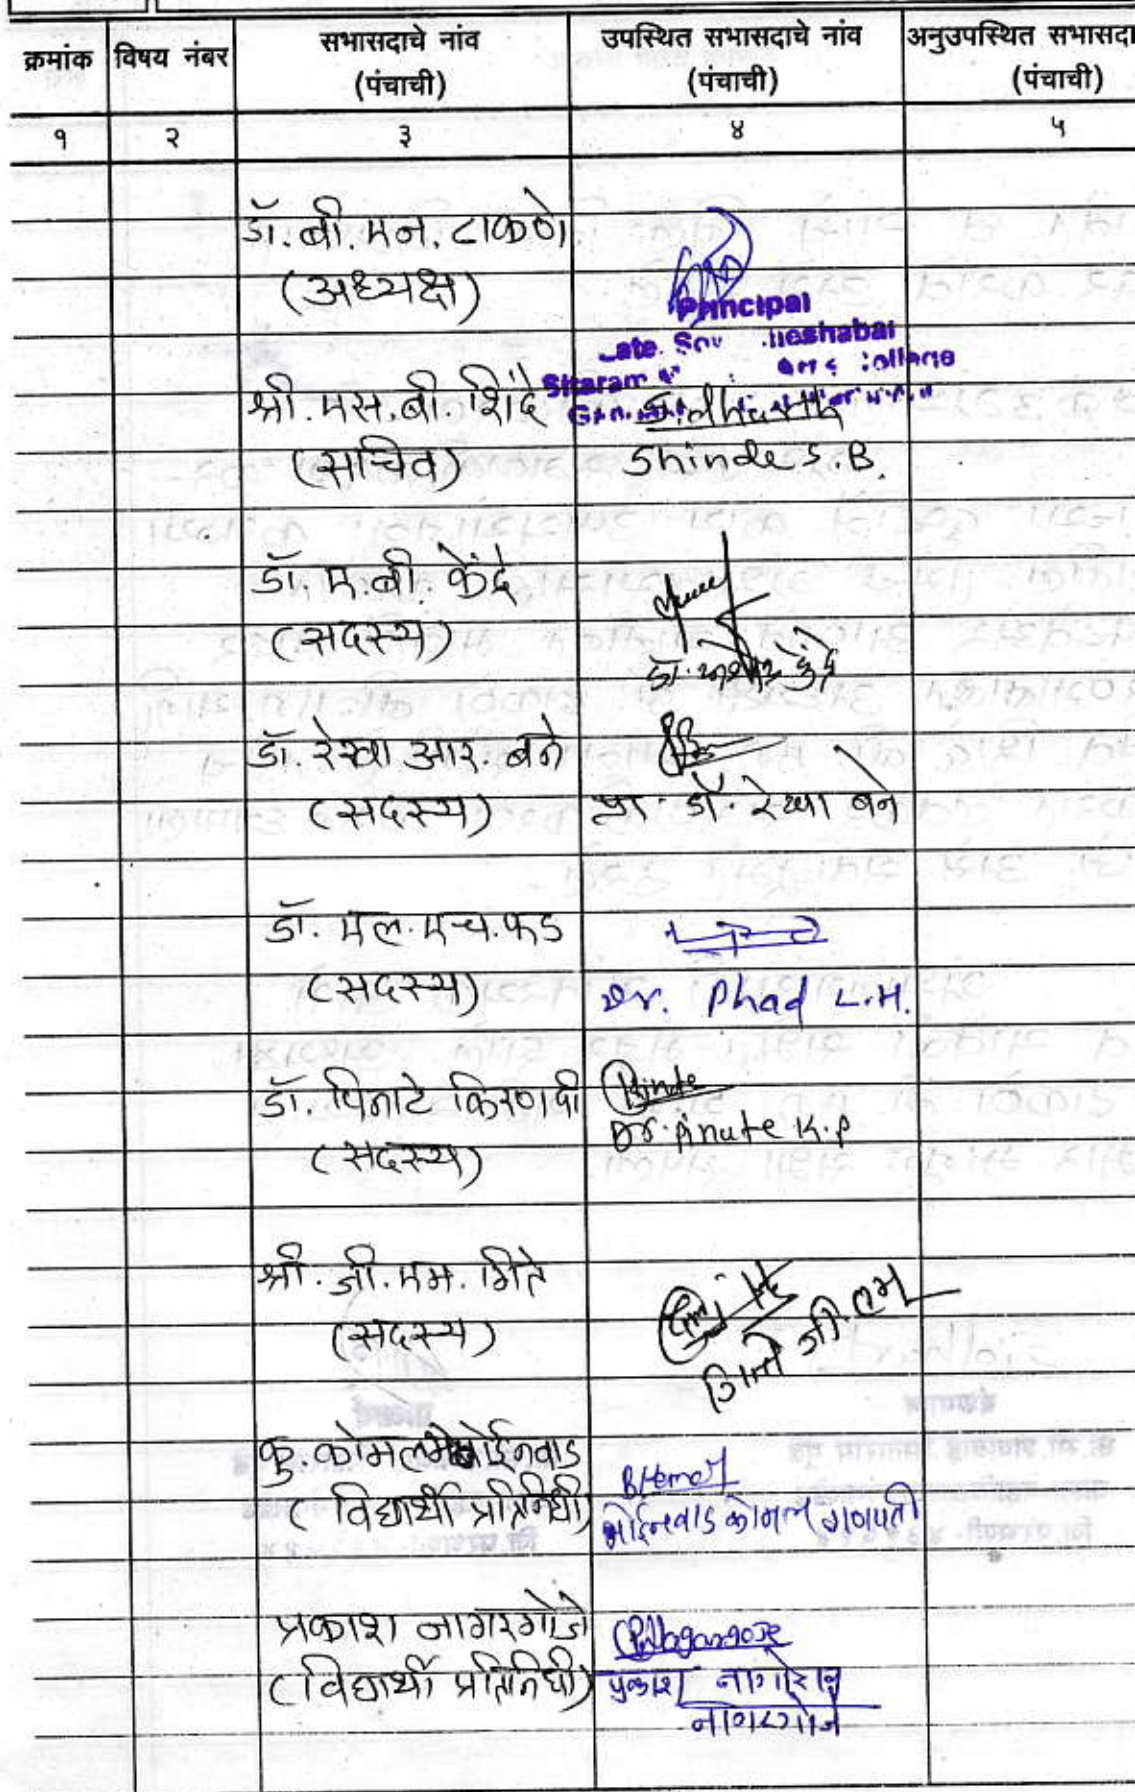 क्रमांक विषय नंबर सभासदाचे नांव (पंचाची) उपस्थित सभासदाचे नांव (पंचाची) अनुउपस्थित सभासदा (पंचाची)
१ २ ३ ४ ५
डॉ. बी. एन. टाकणे
(अध्यक्ष)
Principal
Late. Sov
श्री. एस. बी. शिंदे
(सचिव) Shinde S.B.
डॉ. ए. बी. केंद्रे
(सदस्य)
डॉ. केंद्रे
डॉ. रेखा आर. बने
(सदस्य) प्रा. डॉ. रेखा बने
डॉ. एल. एच. फड
(सदस्य) Dr. Phad L.H.
डॉ. पिनाटे किरण पी
(सदस्य) Dr. Pinate K.P
श्री. जी. एम. गिते
(सदस्य) गिते जी. एम
कु. कोमल भोईनवाड
(विद्यार्थी प्रतिनिधी) भोईनवाड कोमल गणपती
प्रकाश नागरगोजे PNagargoje
(विद्यार्थी प्रतिनिधी) प्रकाश
नागरगोजे